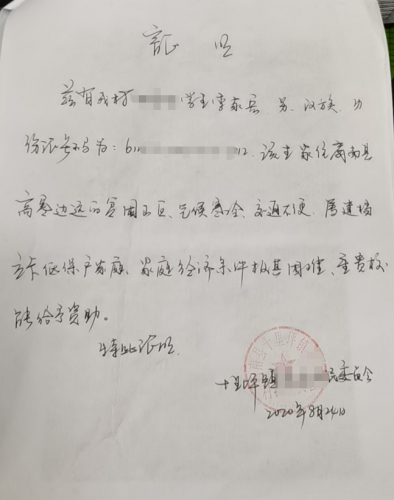 证明
兹有我村 学生李家兵 男、汉族、身
份证号码为：61 12. 该生家住岚皋县
高寒边远的贫困山区、气候寒冷、交通不便、属建档
立卡低保户家庭、家庭经济条件极其困难、望贵校
能给予资助。
特此证明.
坪镇 委员会
2020年8月24日